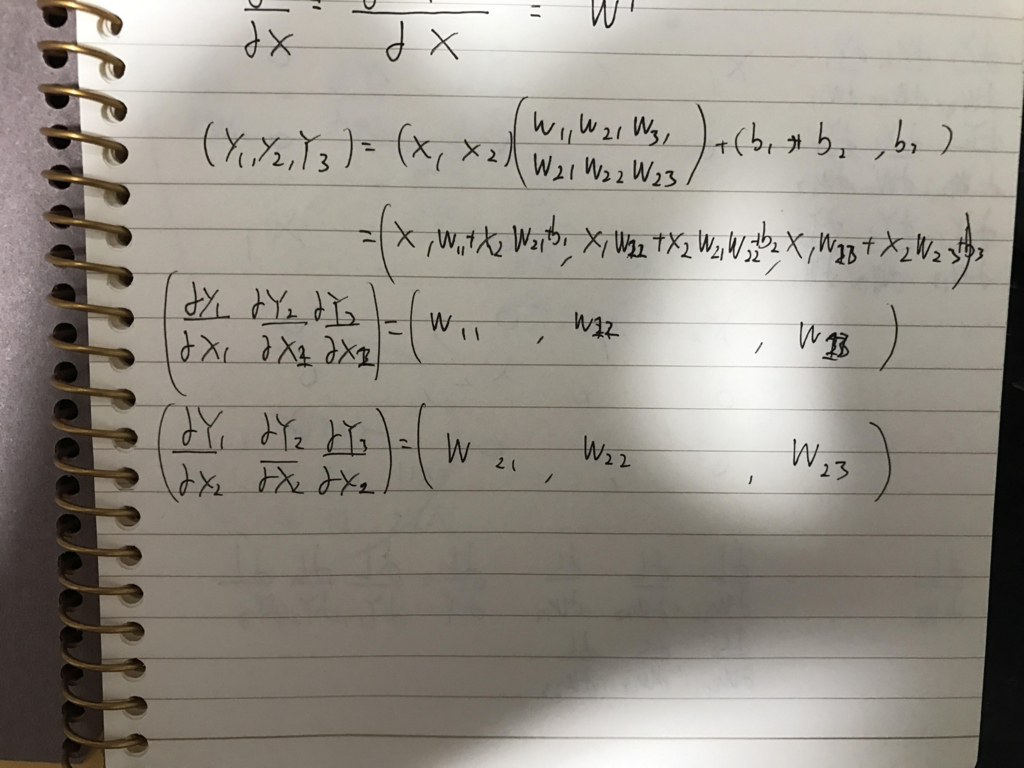 ∂X = ∂X = W
(Y₁, Y₂, Y₃) = (X₁ X₂) (W₁₁ W₂₁ W₃₁ / W₂₁ W₂₂ W₂₃) + (b₁ b₂ , b₃)
= (X₁W₁₁+X₂W₂₁+b₁, X₁W₁₂+X₂W₂₁W₂₂+b₂, X₁W₁₃+X₂W₂₃+b₃)
(∂Y₁/∂X₁ ∂Y₂/∂X₁ ∂Y₃/∂X₁) = (W₁₁ , W₁₂ , W₁₃)
(∂Y₁/∂X₂ ∂Y₂/∂X₂ ∂Y₃/∂X₂) = (W₂₁ , W₂₂ , W₂₃)